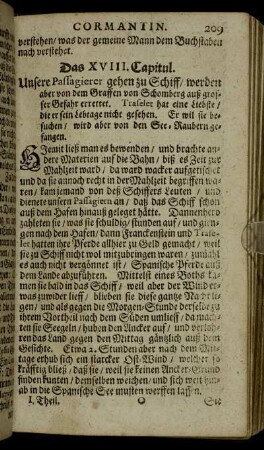 CORMANTIN. 209
verstehen / was der gemeine Mann dem Buchstaben
nach verstehet.
Das XVIII. Capitul.
Unsere Passagierer gehen zu Schiff / werden
aber von dem Graffen von Schomberg auß gros-
ser Gefahr errettet. Trafeler hat eine Liebste /
die er sein Lebtage nicht gesehen. Er wil sie be-
suchen / wird aber von den See-Raubern ge-
fangen.
HJemit ließ man es bewenden / und brachte an-
dere Materien auff die Bahn / biß es Zeit zur
Mahlzeit ward / da ward wacker auffgetischet
und da sie annoch recht in der Mahlzeit begriffen wa-
ren / kam jemand von des Schiffers Leuten / und
dienete unsern Passagiern an / daß das Schiff schon
auß dem Hafen hinauß geleget hätte. Dannenhero
zahleten sie / was sie schuldig / stunden auf / und gien-
gen nach dem Hafen / dann Francken­stein und Trafe-
ler hatten ihre Pferde allhier zu Geld gemacht / weil
sie zu Schiff nicht wol mitzubringen waren / zumahl
es auch nicht vergönnet ist / Spanische Pferde auß
dem Lande abzuführen. Mittelst eines Boths ka-
men sie bald in das Schiff / weil aber der Wind et-
was zuwider lieff / blieben sie diese gantze Nacht li-
gen / und als gegen die Morgen-Stunde derselbe zu
ihrem Vortheil nach dem Süden umlieff / da mach-
ten sie Seegeln / huben den Ancker auf / und verlohr-
ren das Land gegen den Mittag gäntzlich auß dem
Gesichte. Etwa 2. Stunden aber nach dem Mit-
tage erhub sich ein starcker Ost-Wind / welcher so
kräfftig bließ / daß sie / weil sie keinen Ancker-Grund
finden kunten / demselben weichen / und sich weit hin-
ab in die Spanische See musten werffen lassen.
I. Theil. O Sie